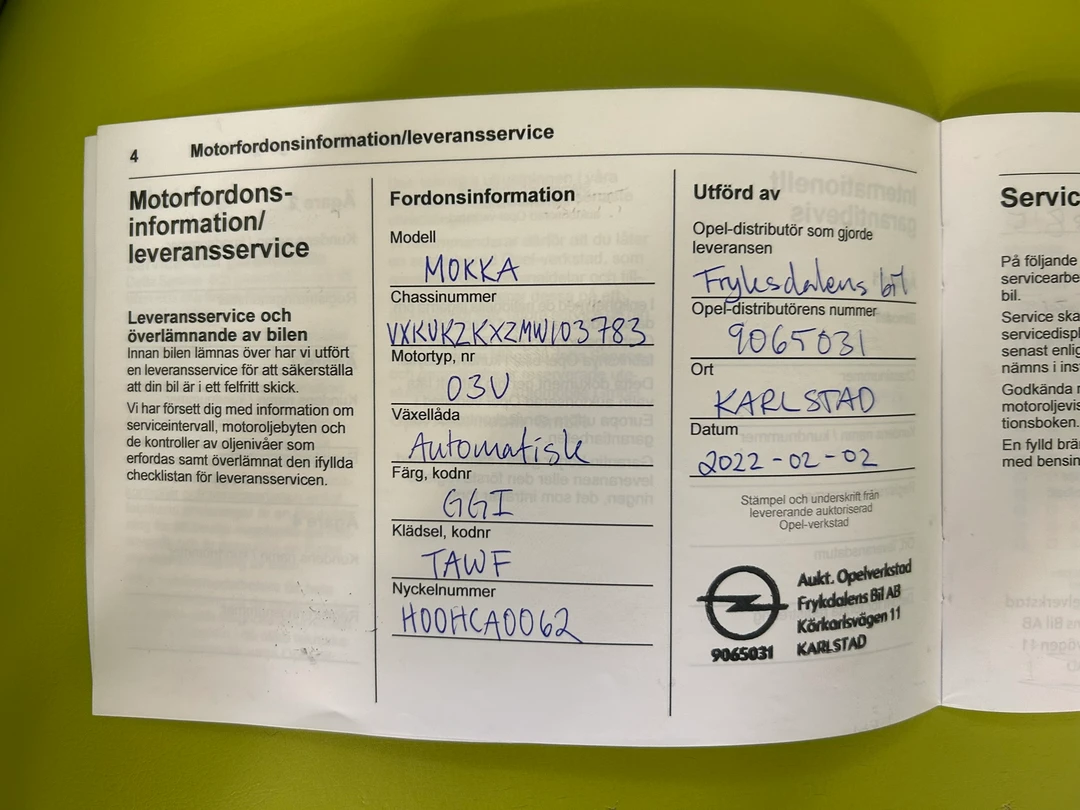 4 Motorfordonsinformation/leveransservice
Motorfordons-
information/
leveransservice
Leveransservice och
överlämnande av bilen
Innan bilen lämnas över har vi utfört
en leveransservice för att säkerställa
att din bil är i ett felfritt skick.
Vi har försett dig med information om
serviceintervall, motoroljebyten och
de kontroller av oljenivåer som
erfordas samt överlämnat den ifyllda
checklistan för leveransservicen.
Fordonsinformation
Modell
MOKKA
Chassinummer
VXKUKZKXZMW103783
Motortyp, nr
03U
Växellåda
Automatisk
Färg, kodnr
GGI
Klädsel, kodnr
TAWF
Nyckelnummer
H00HCA0062
Utförd av
Opel-distributör som gjorde
leveransen
Fryksdalens bil
Opel-distributörens nummer
9065031
Ort
KARLSTAD
Datum
2022-02-02
Stämpel och underskrift från
levererande auktoriserad
Opel-verkstad
Aukt. Opelverkstad
Frykdalens Bil AB
Körkarlsvägen 11
9065031 KARLSTAD
Servic
På följande
servicearbe
bil.
Service ska
servicedispl
senast enlig
nämns i ins
Godkända r
motoroljevis
tionsboken.
En fylld brä
med bensin